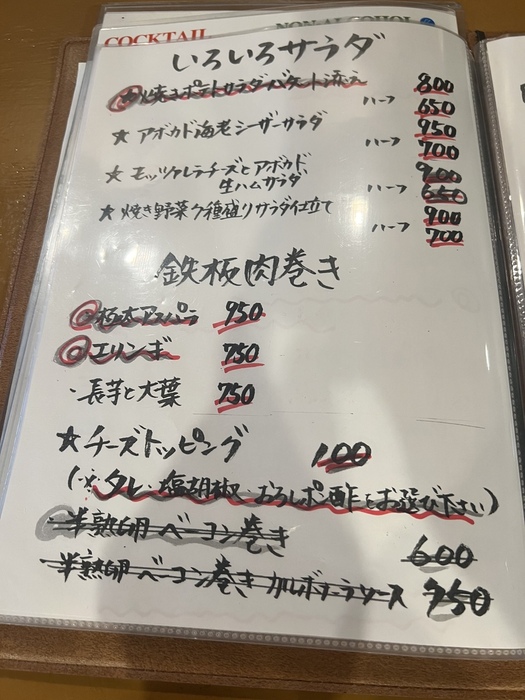 COCKTAIL NON ALCOHOL
いろいろサラダ
焼きポテトサラダバケット添え 800
ハーフ 650
★ アボカド海老シーザーサラダ 950
ハーフ 700
★ モッツァレラチーズとアボカド 900
生ハムサラダ
ハーフ 650
★ 焼き野菜7種盛りサラダ仕立て 900
ハーフ 700
鉄板肉巻き
極太アスパラ 950
エリンギ 750
・長芋と大葉 750
★チーズトッピング 100
(※タレ・塩胡椒・おろしポン酢とお選び下さい)
半熟卵ベーコン巻き 600
半熟卵ベーコン巻きカルボナーラソース 750